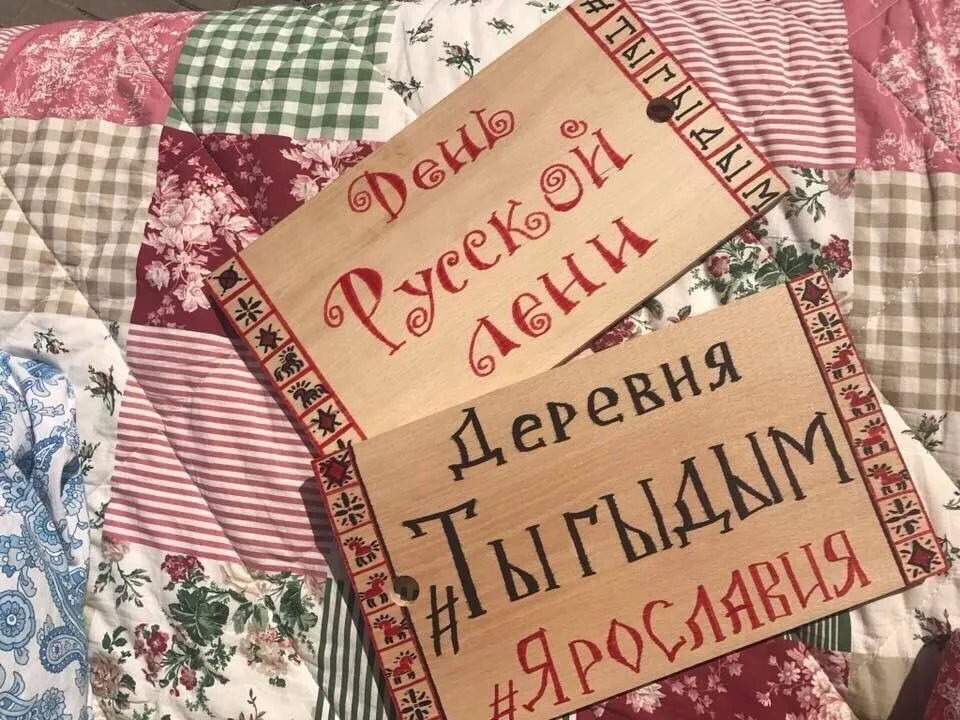 День
Русской
лени
#ТЫГЫДЫМ
Деревня
#Тыгыдым
#Ярославия